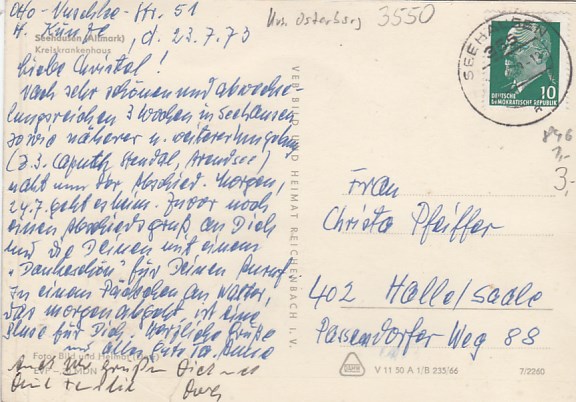 Otto-Nuschke-Str. 51
H. Kunze, d. 23.7.73
Seehausen (Altmark)
Kreiskrankenhaus
Liebe Christal!
Nach sehr schönen und abwechs-
lungsreichen 3 Wochen in Seehausen
sowie näherer u. weiterer Umgebung
(z.B. Caputh, Stendal, Arendsee)
naht nun der Abschied. Morgen,
24.7. geht es heim. Zuvor noch
einen Abschiedsgruß an Dich
und die Deinen mit einem
"Dankeschön" für Deinen Anruf.
In einem Päckchen an Walter,
das morgen abgeht, ist eine
für Dich. Herzliche Grüße
und alles Gute
Foto: Bild und Heimat
EVP MDN
Auch wir grüßen Dich
VEB BILD UND HEIMAT REICHENBACH I. V.
Krs. Osterburg 3550
SEEHAUSEN
10
DEUTSCHE
DEMOKRATISCHE REPUBLIK
846
3,-
Frau
Christa Pfeiffer
402 Halle/Saale
Passendorfer Weg 88
V 11 50 A 1/B 235/66
7/2260